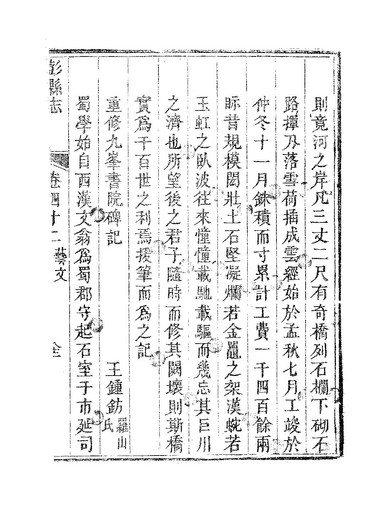 則竟河之岸凡三丈二尺有奇橋列石欄下砌石
路擇乃落雲荷插成雲經始於孟秋七月工竣於
仲冬十一月銖積而寸累計工費一千四百餘兩
眎昔規模闊壯土石堅凝爛若金黿之架漢蜿若
玉虹之臥波往來憧憧載馳載驅而幾忘其巨川
之濟也所望後之君子隨時而修其闕壞則斯橋
實爲千百世之利焉援筆而爲之記
重修九峯書院碑記 王鍾鈁羅山氏
蜀學始自西漢文翁爲蜀郡守起石室于市延司
彭縣志 卷四十二藝文 全